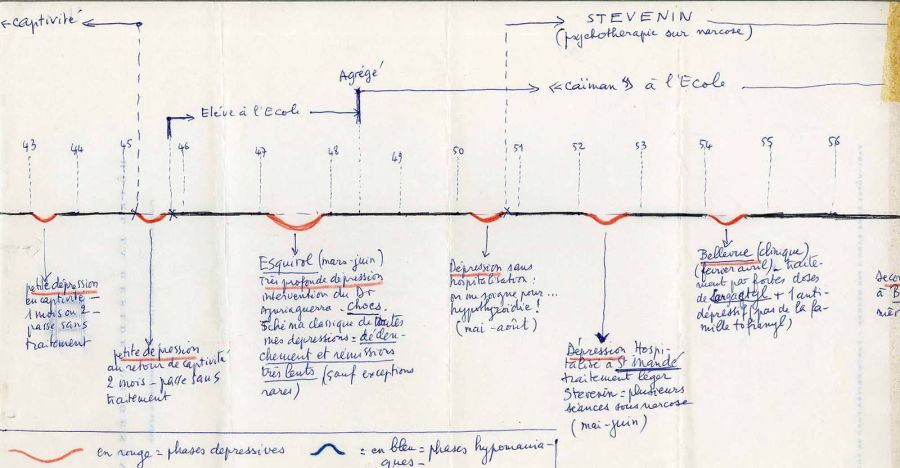 captivité
STEVENIN
(psychothérapie sur narcose)
Agrégé
"caïman" à l'Ecole
Elève à l'Ecole
43 44 45 46 47 48 49 50 51 52 53 54 55 56
petite dépression
en captivité -
1 mois ou 2 -
passe sans
traitement
petite dépression
au retour de captivité
2 mois - passe sans
traitement
ESquirol (mars-juin)
Très profonde dépression
intervention du Dr
Ajuriaguerra. chocs.
Schéma classique de toutes
mes dépressions = déclen-
chement et rémissions
très lents (sauf exceptions
rares)
Dépression sans
hospitalisation :
on me soigne pour...
hypothyroïdie !
(mai-août)
Dépression Hospi-
talisé à St Mandé
traitement léger
Stevenin = plusieurs
séances sous narcose
(mai-juin)
Bellevue (clinique)
(février avril) - traite-
ment par fortes doses
de Largactyl + 1 anti-
dépressif (pas de la fa-
mille tofranyl)
Secon
à B
mêr
en rouge = phases depressives
= en bleu = phases hypomania-
ques -